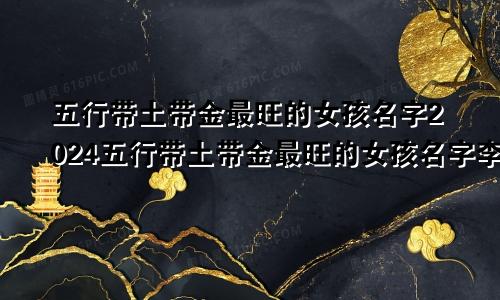 五行带土带金最旺的女孩名字2
024五行带土带金最旺的女孩名字李
图精灵 616PIC.COM